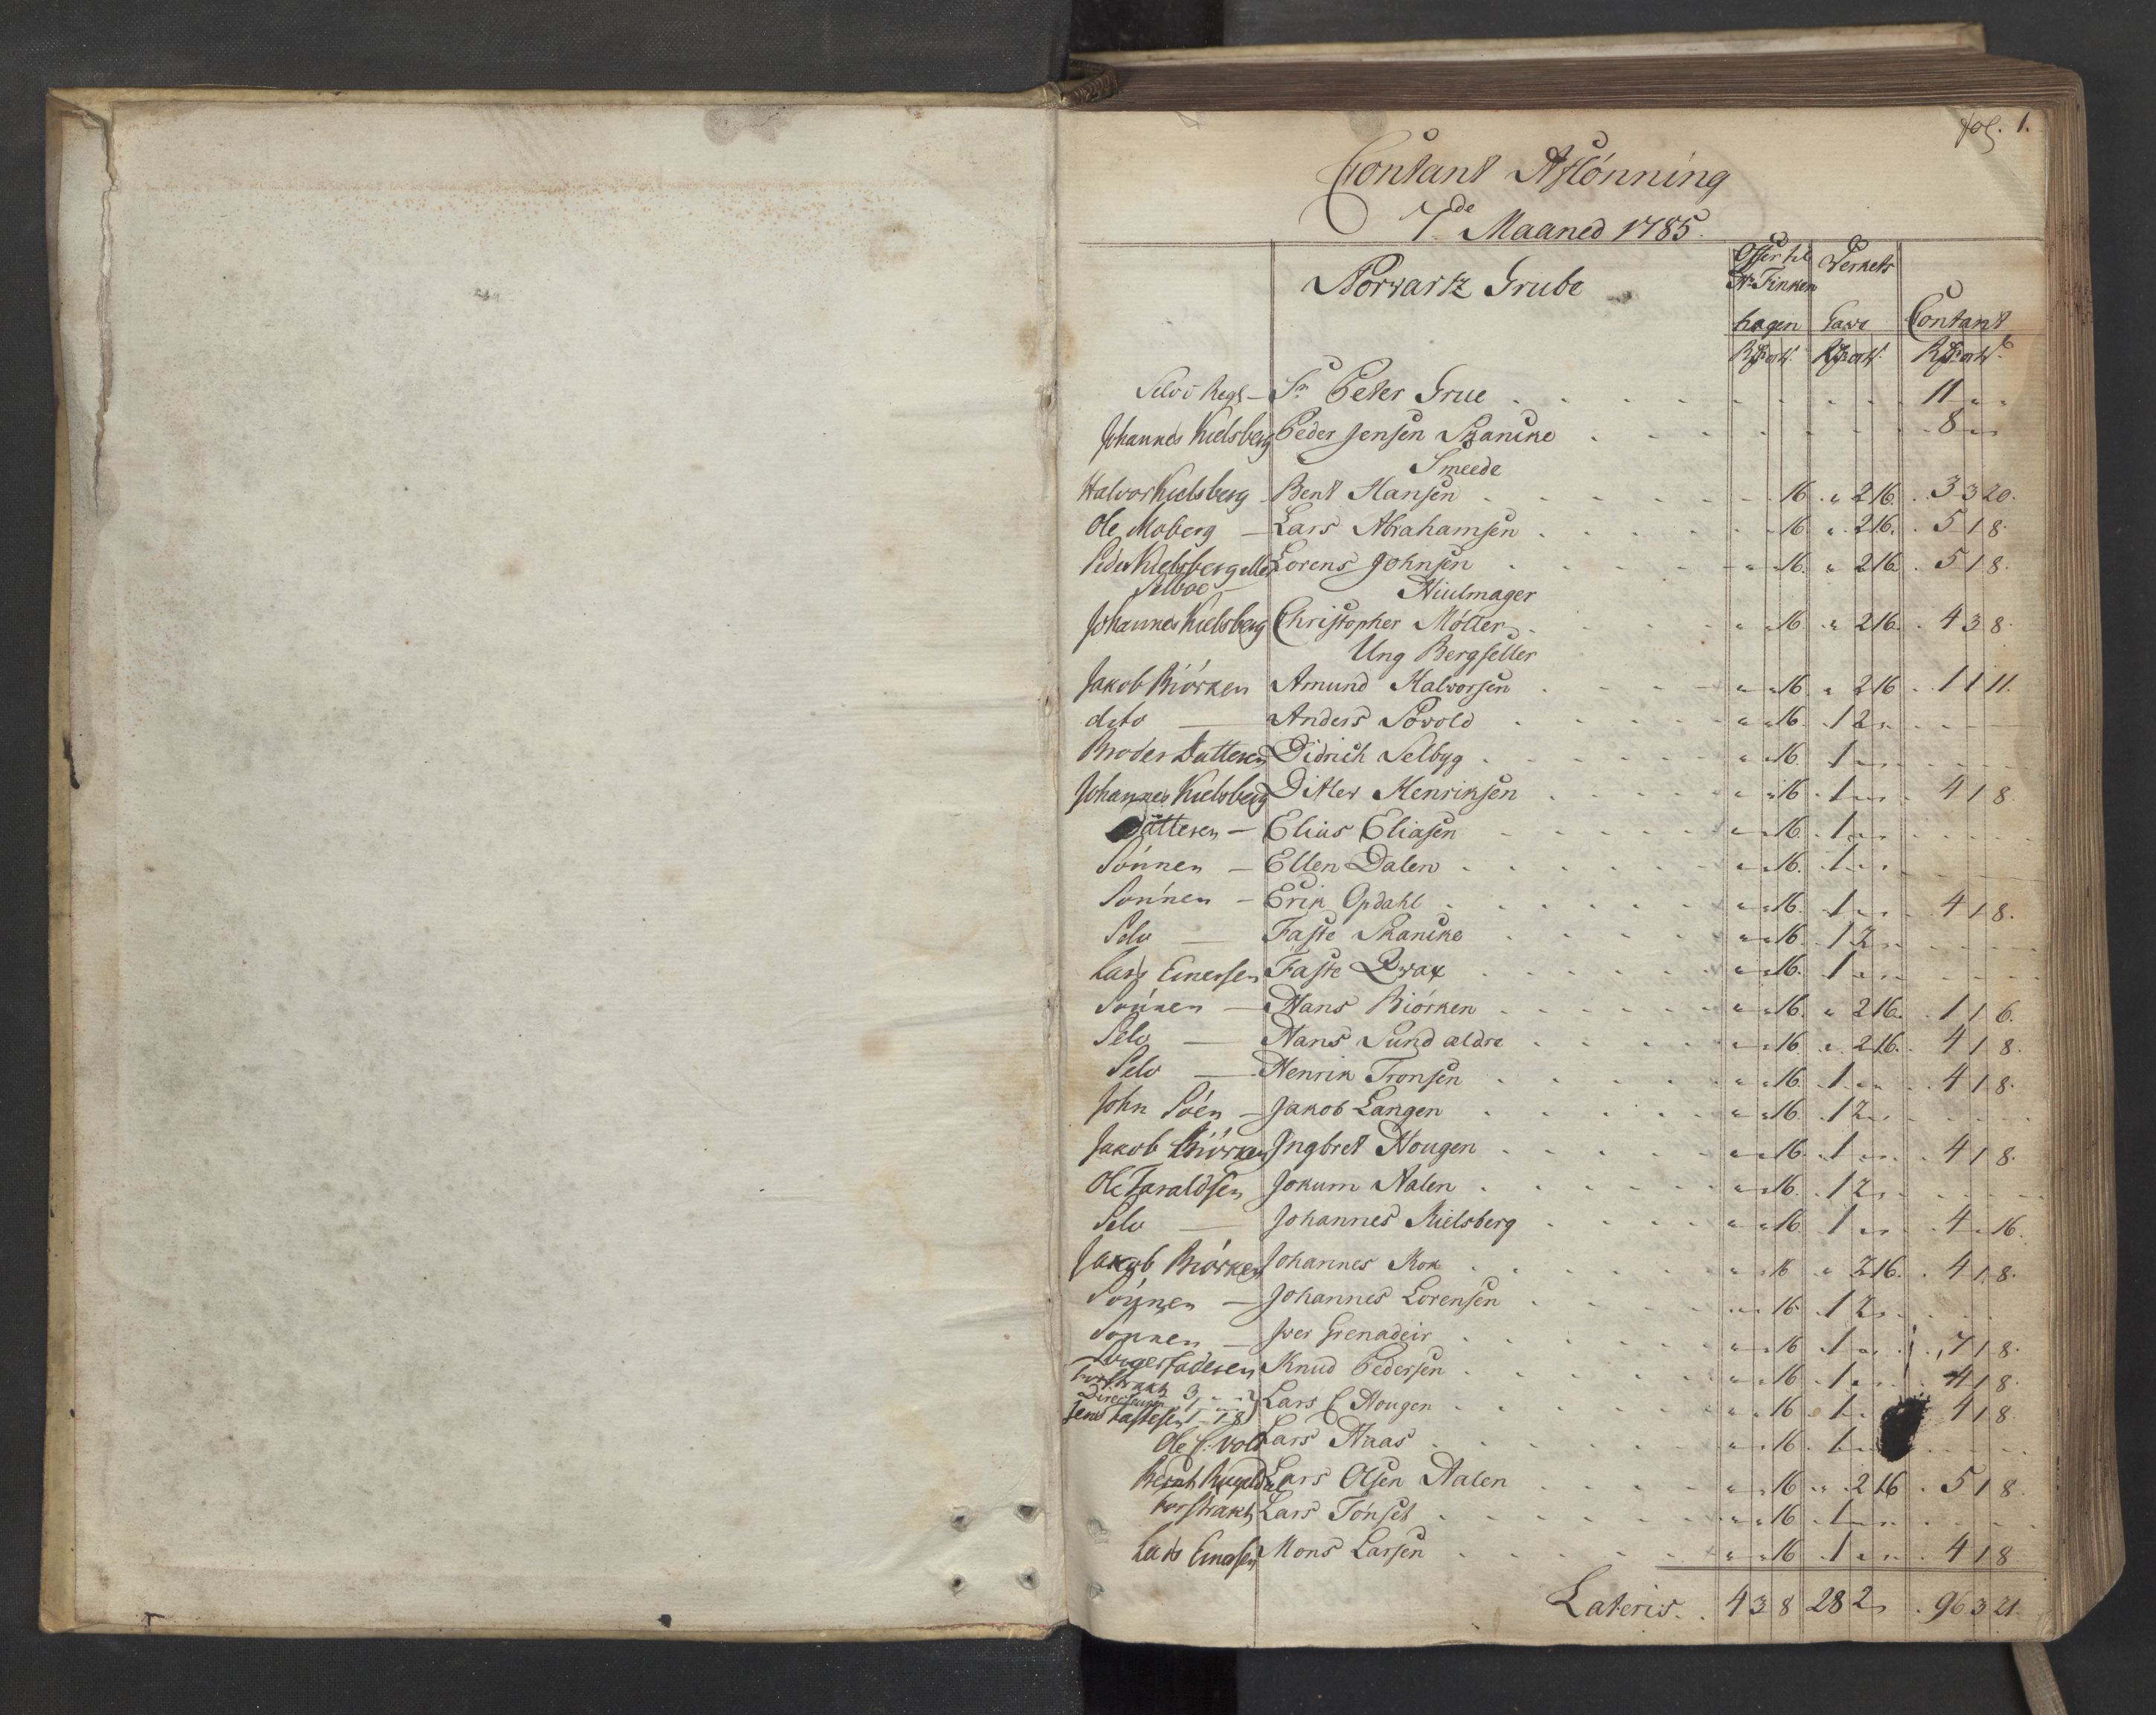 fol. 1.
Contant Aflönning
7de Maaned 1785.
Norvartz Grube
Offer til Hr Finkenhagen
Verkets Gawe
Contant
Selv Sr Peter Grue 11 " "
Johannes Kielsberg Peder Jensen Skancke 8 " "
Smeede
Halvor Kielsberg Bent Hansen 16 " 2 16 3 3 20
Ole Moberg Lars Abrahamsen 16 " 2 16 5 1 8
Peder Kielsberg eller Selboe Lorens Johnsen " 16 " 2 16 5 1 8
Hiulmager
Johannes Kielsberg Christopher Möller " " 16 " 2 16 4 3 8
Ung Bergseller
Jakob Biörken Amund Halvorsen " " 16 " 2 16 1 1 11
dito Anders Powold " " 16 1 2 "
Broder Datteren Didrich Selbyg " " 16 1 " "
Johannes Kielsberg Ditlev Henriksen " " 16 1 " " 4 1 8
Datteren Elias Eliasen " " 16 1 " "
Sönnen Ellen Dalen " " 16 1 " "
Sönnen Erik Opdahl " " 16 1 " " 4 1 8
Selv Faste Skancke " " 16 1 2 "
Lars Einersen Faste Qvax " " 16 1 " "
Sönnen Hans Biörken " " 16 " 2 16 1 1 6
Selv Hans Sund ældre " " 16 " 2 16 4 1 8
Selv Henrik Tronsen " " 16 1 " " 4 1 8
John Söen Jakob Langen " " 16 1 2 "
Jakob Biörken Ingbret Hougen " " 16 1 " " 4 1 8
Ole Taraldsen Jokum Aalen " " 16 1 2 "
Selv Johannes Kielsberg " " 16 1 " " 4 " 16
Jakob Biörken Johannes Kok " " 16 " 2 16 4 1 8
Sönnen Johannes Lorensen " " 16 1 2 "
Sönnen Iver Grenadeir " " 16 1 " " 7 1 8
Svigerfaderen Knud Pedersen " " 16 1 " " 4 1 8
Forstrakt Directeuren 3 " "
Jens Fastesen 1 1 8 Lars C Hougen " " 16 1 " 4 1 8
Ole C. Vold Lars Aaas " " 16 1 "
Bernt Lars Olsen Aalen " " 16 " 2 16 5 1 8
Forstrakt Lars Tönset " " 16 1 " "
Lars Einersen Mons Larsen " " 16 1 " " 4 1 8
Lateris 4 3 8 28 2 " 96 3 21